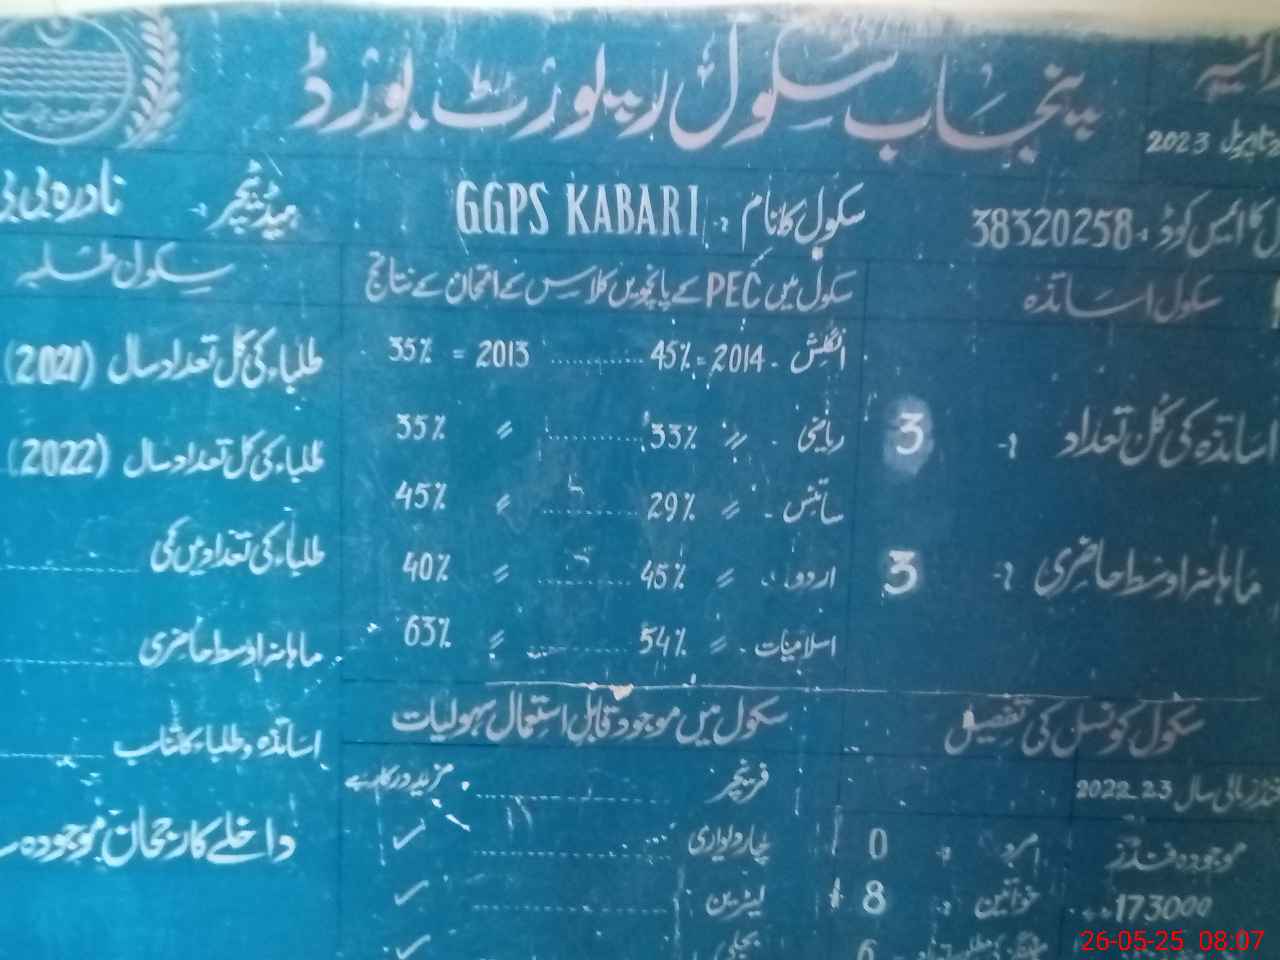 پنجاب سکول رپورٹ بورڈ
اپریل 2023
کا ایمس کوڈ :- 38320258
سکول کا نام :- GGPS KABARI
ہیڈ ٹیچر نادرہ بی بی
سکول اساتذہ
اساتذہ کی کل تعداد :- 3
ماہانہ اوسط حاضری :- 3
سکول میں PEC کے پانچویں کلاس کے امتحان کے نتائج
انگلش - 2014 = 45% ............ 2013 = 35%
ریاضی - 〃 33% ............ 〃 35%
سائنس - 〃 29% ............ 〃 45%
اردو - 〃 45% ............ 〃 40%
اسلامیات - 〃 54% ............ 〃 63%
سکول طلبہ
طلباء کی کل تعداد سال (2021)
طلباء کی کل تعداد سال (2022)
طلباء کی تعداد میں کمی ............
ماہانہ اوسط حاضری ............
اساتذہ و طلباء کا تناسب ............
داخلے کا رجحان موجودہ
سکول کونسل کی تفصیل
مالی سال 2022-23
موجودہ فنڈز
173000
مرد 0
خواتین 8
6
سکول میں موجود قابل استعمال سہولیات
فرنیچر ............ مزید درکار ہے
چار دیواری ............ ✓
لیٹرین ............ ✓
بجلی ............ ✓
26-05-25 08:07